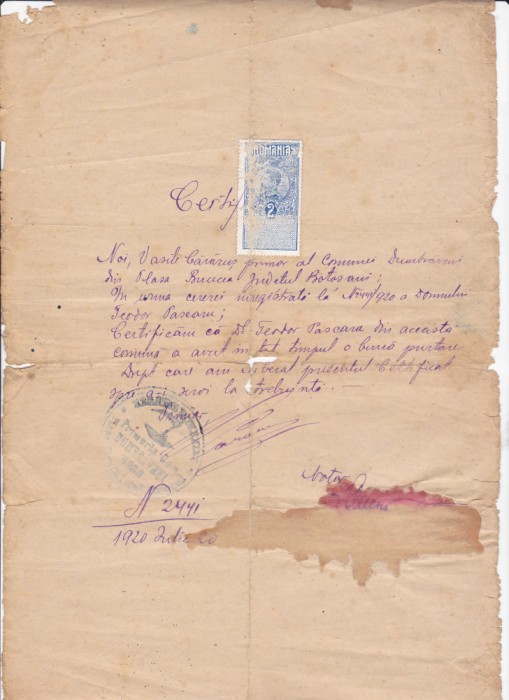 ROMANIA
2
Certif
Noi, Vasile primar al Comunei Dumbraveni
din Plasa Bucecea Judetul Botosani;
In urma cererei inregistrată la No 1920 a Domnului
Teodor Pascaru;
Certificăm că Dl. Teodor Pascaru din aceasta
comună a avut in tot timpul o bună purtare
Dept care am liberat presentul Certificat
spre a-i servi la trebuintă. —
Primar
Notar
N 2441
1920 Iulie 20